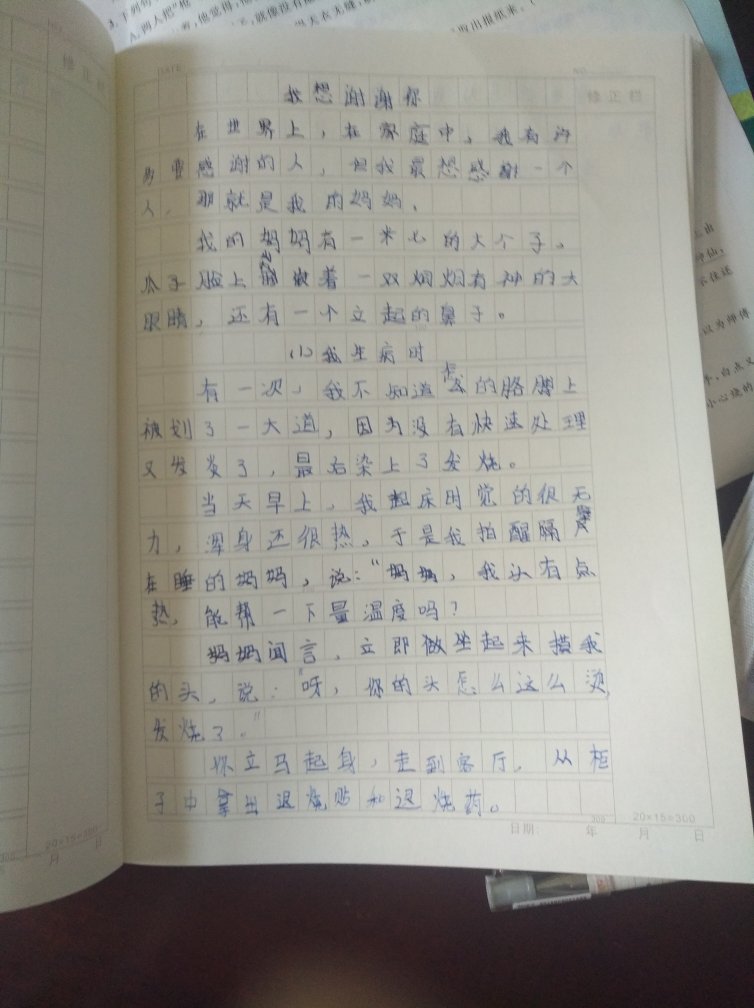 3. 下列句
A. 两人把"
DATE
NO
修正栏
修正栏
我想谢谢你
在世界上，在家庭中，我有许
多要感谢的人，但我最想感谢一个
人，那就是我的妈妈。
我的妈妈有一米七的大个子，
瓜子脸上放着一双炯炯有神的大
眼睛，还有一个立起的鼻子。
(1)我生病时
有一次，我不知道的胳膊上
被划了一大道，因为没有快速处理
又发炎了，最后染上了发烧。
当天早上，我起床时觉的很无
力，浑身还很热，于是我拍醒隔壁
在睡的妈妈，说："妈妈，我头有点
热，能帮一下量温度吗？
妈妈闻言，立即做坐起来摸我
的头，说："呀，你的头怎么这么烫，
发烧了。"
你立马起身，走到客厅，从柜
子中拿出退烧贴和退烧药。
300
20×15=300
日期： 年 月 日
300
20×15=300
月 日
取出报纸来。
不住迷
以为师傅
，白点又
小心烫的